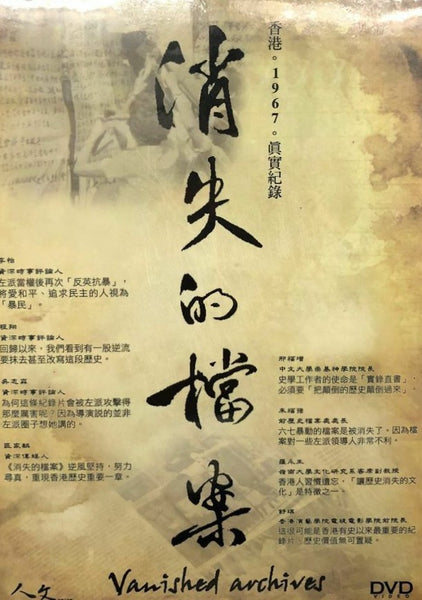 香港。1967。真實紀錄
消失的檔案
李怡
資深時事評論人
左派當權後再次「反英抗暴」，
將愛和平、追求民主的人視為
「暴民」。
程翔
資深時事評論人
回歸以來，我們看到有一股逆流
要抹去甚至改寫這段歷史。
吳志森
資深時事評論人
為何這條紀錄片會被左派攻擊得
那麼厲害呢？因為導演說的並非
左派圈子想她講的。
區家麟
資深傳媒人
《消失的檔案》逆風堅持，努力
尋真，重現香港歷史重要一章。
邢福增
中文大學崇基神學院院長
史學工作者的使命是「實錄直書」：
必須要「把顛倒的歷史顛倒過來」。
朱福強
前歷史檔案處處長
六七暴動的檔案是被消失了，因為檔
案對一些左派領導人非常不利。
羅永生
嶺南大學文化研究系客席副教授
香港人習慣遺忘，「讓歷史消失的文
化」是特徵之一。
舒琪
香港演藝學院電視電影學院前院長
這很可能是香港有史以來最重要的紀
錄片，歷史價值無可置疑。
人文
Vanished archives
DVD
VIDEO